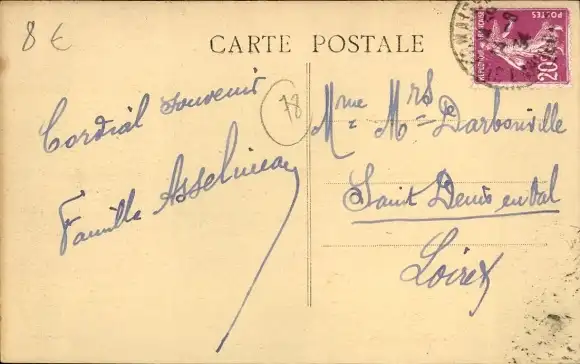 8 €
CARTE POSTALE
POSTES
20c
Cordial souvenir
78
Famille Asselineau
Mme = Mrs = Darbonville
Saint Denis en Val
Loiret